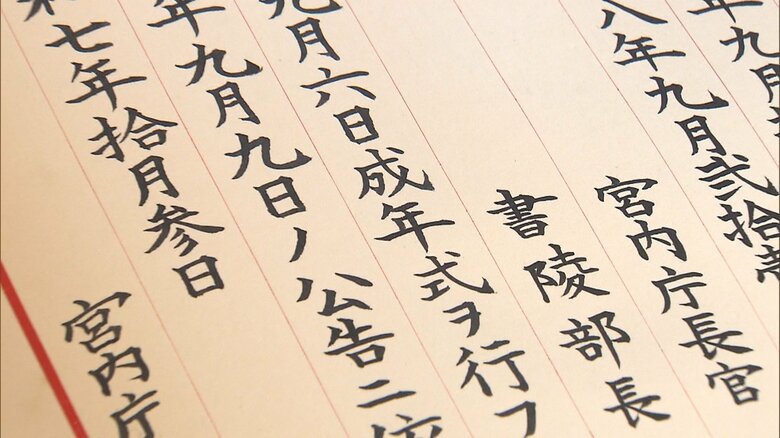 年九月
八年九月弐拾壱
宮内庁長官
書陵部長
九月六日成年式ヲ行フ
年九月九日ノ公告ニ
七年拾月参日
宮内庁